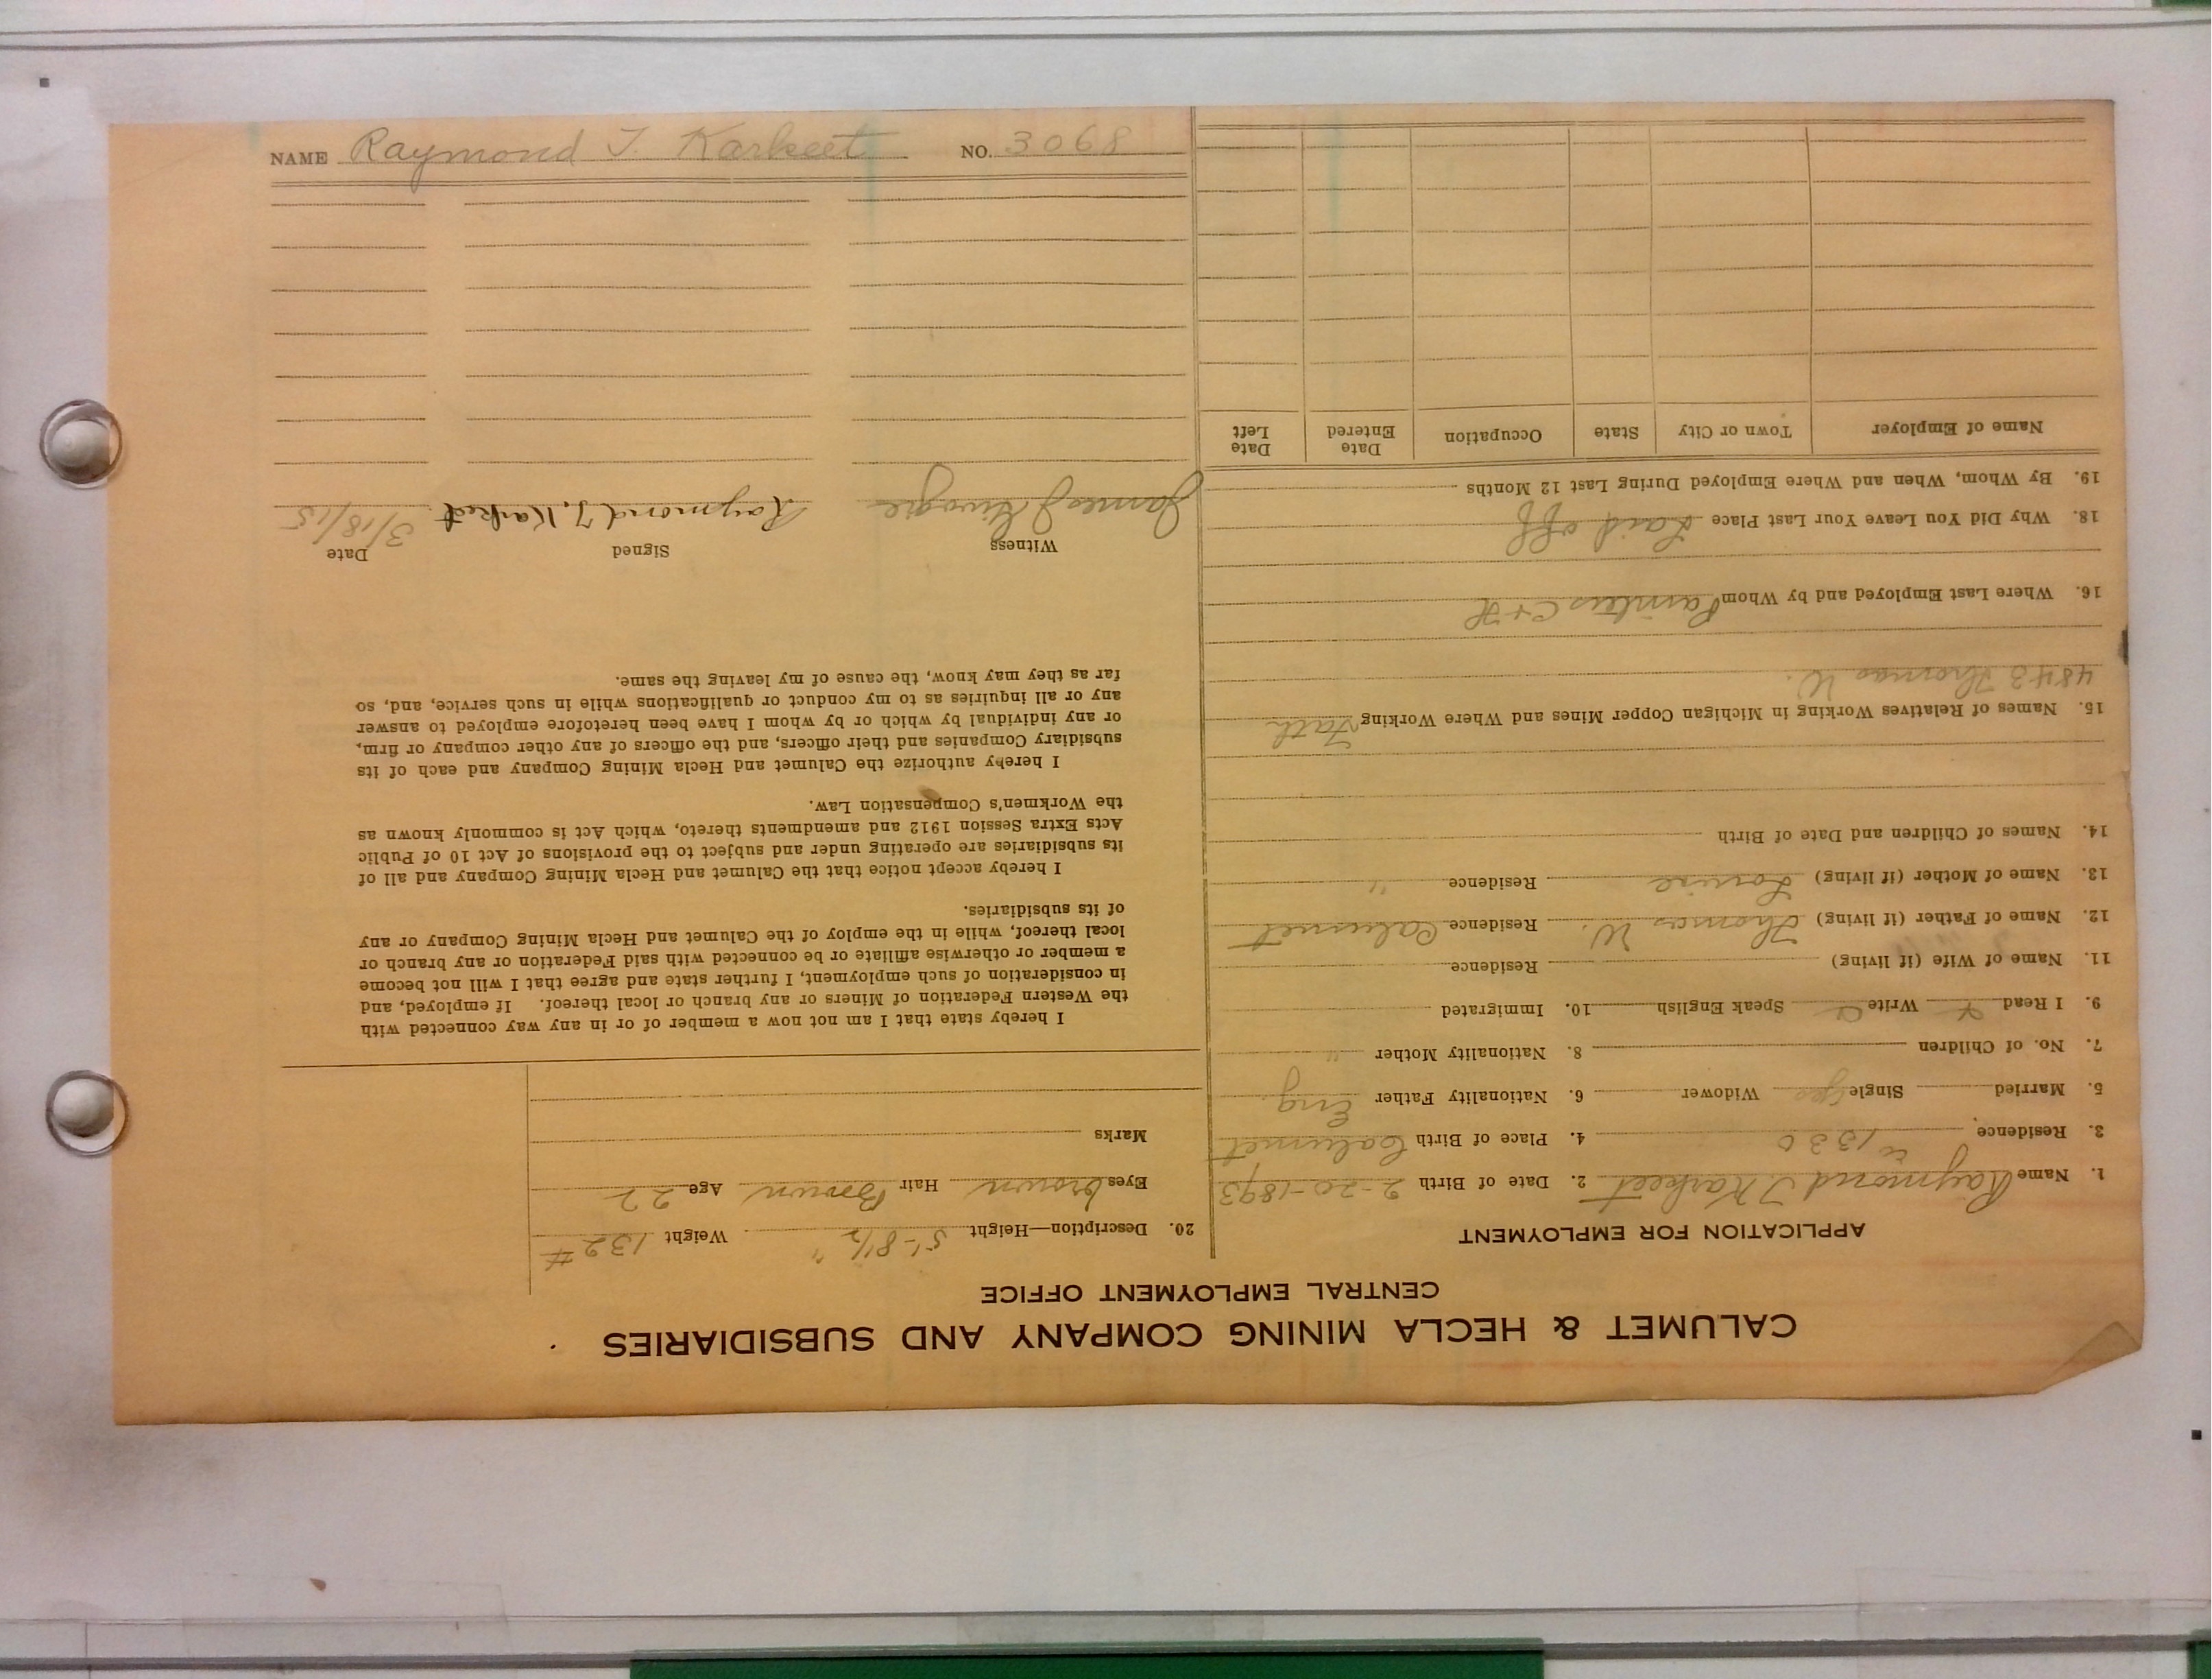 NAME Raymond T. Karkeet NO. 3068
CALUMET & HECLA MINING COMPANY AND SUBSIDIARIES
CENTRAL EMPLOYMENT OFFICE
APPLICATION FOR EMPLOYMENT
1. Name Raymond T Karkeet 2. Date of Birth 2-20-1893
3. Residence 1330 4. Place of Birth Calumet
5. Married Single yes Widower 6. Nationality Father Eng.
7. No. of Children 8. Nationality Mother "
9. I Read Write Speak English 10. Immigrated
11. Name of Wife (if living) Residence
12. Name of Father (if living) Thomas W. Residence Calumet
13. Name of Mother (if living) Louise Residence "
14. Names of Children and Date of Birth
15. Names of Relatives Working in Michigan Copper Mines and Where Working Fath
4843 Thomas W.
16. Where Last Employed and by Whom Painters C+H
18. Why Did You Leave Your Last Place Laid off
19. By Whom, When and Where Employed During Last 12 Months
Name of Employer Town or City State Occupation Date Entered Date Left
20. Description—Height 5'-8½" Weight 132#
Eyes brown Hair Brown Age 22
Marks
I hereby state that I am not now a member of or in any way connected with
the Western Federation of Miners or any branch or local thereof. If employed, and
in consideration of such employment, I further state and agree that I will not become
a member or otherwise affiliate or be connected with said Federation or any branch or
local thereof, while in the employ of the Calumet and Hecla Mining Company or any
of its subsidiaries.
I hereby accept notice that the Calumet and Hecla Mining Company and all of
its subsidiaries are operating under and subject to the provisions of Act 10 of Public
Acts Extra Session 1912 and amendments thereto, which Act is commonly known as
the Workmen's Compensation Law.
I hereby authorize the Calumet and Hecla Mining Company and each of its
subsidiary Companies and their officers, and the officers of any other company or firm,
or any individual by which or by whom I have been heretofore employed to answer
any or all inquiries as to my conduct or qualifications while in such service, and, so
far as they may know, the cause of my leaving the same.
Witness Signed Date
James J Raymond T. Karkeet 3/18/15